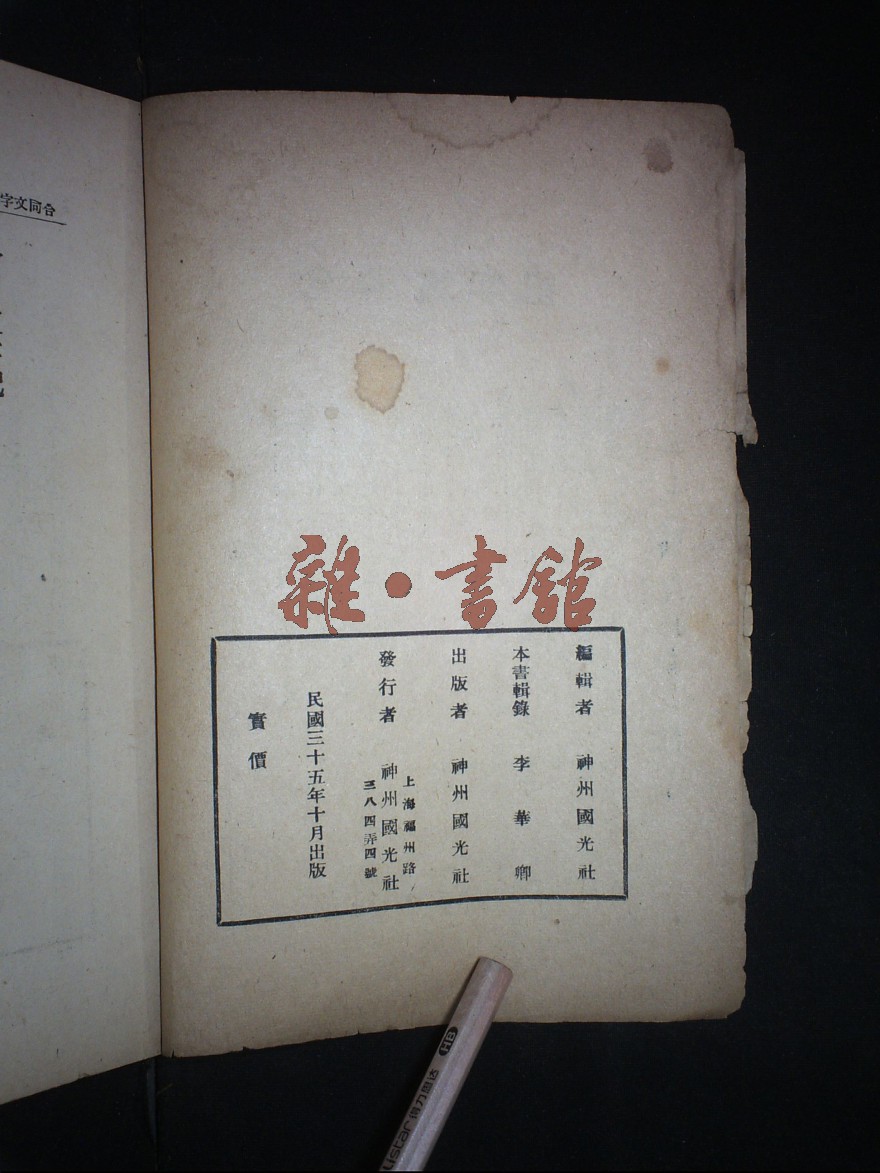 雜・書館
編輯者 神州國光社
本書輯錄 李華卿
出版者 神州國光社
發行者 神州國光社
上海福州路
三八四弄四號
民國三十五年十月出版
實價
合同文字
HB
得力四达